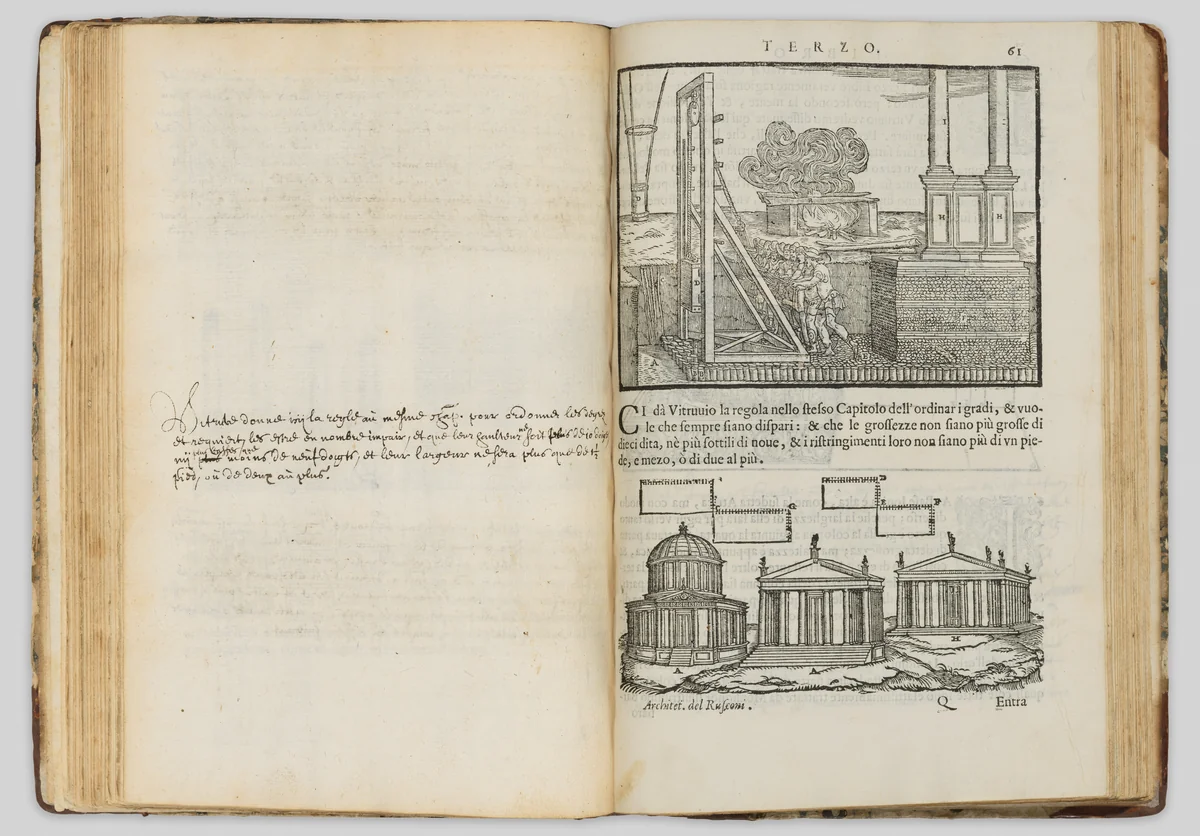 Vitruve donne icy la regle au mesme chap. pour ordonner les degrez
et requiert, les estre en nombre impair, et que leur haulteur ne soit plus de 10 doigts
ny moins de neuf doigts, et leur largeur ne sera plus que de 1½
pied, ou de deux au plus.
TERZO. 61
D
A
H H
CI dà Vitruuio la regola nello stesso Capitolo dell'ordinar i gradi, & vuo-
le che sempre siano dispari: & che le grossezze non siano più grosse di
dieci dita, nè più sottili di noue, & i ristringimenti loro non siano più di vn pie-
de, e mezo, ò di due al più.
A A H
Architet. del Rusconi. Q Entra